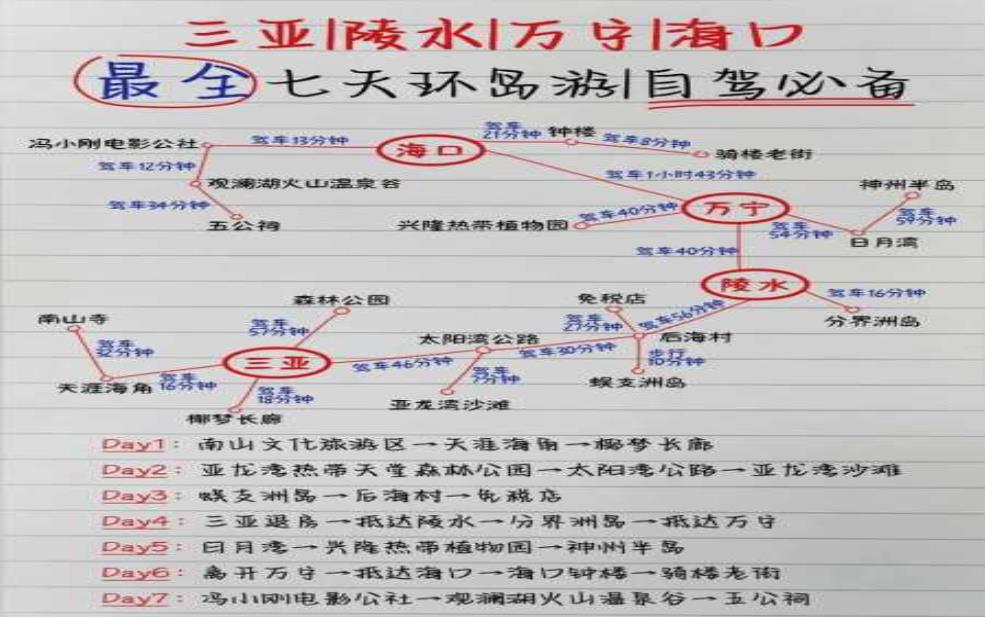 三亚|陵水|万宁|海口
最全七天环岛游|自驾必备
冯小刚电影公社
驾车13分钟
海口
驾车21分钟
钟楼
驾车8分钟
骑楼老街
驾车12分钟
观澜湖火山温泉谷
驾车1小时43分钟
神州半岛
驾车34分钟
五公祠
兴隆热带植物园
驾车40分钟
万宁
驾车54分钟
驾车59分钟
日月湾
驾车40分钟
陵水
驾车16分钟
分界洲岛
森林公园
免税店
南山寺
驾车57分钟
驾车27分钟
驾车56分钟
太阳湾公路
后海村
驾车32分钟
三亚
驾车46分钟
驾车30分钟
步行10分钟
天涯海角
驾车16分钟
驾车18分钟
驾车7分钟
蜈支洲岛
椰梦长廊
亚龙湾沙滩
Day1：南山文化旅游区→天涯海角→椰梦长廊
Day2：亚龙湾热带天堂森林公园→太阳湾公路→亚龙湾沙滩
Day3：蜈支洲岛→后海村→免税店
Day4：三亚退房→抵达陵水→分界洲岛→抵达万宁
Day5：日月湾→兴隆热带植物园→神州半岛
Day6：离开万宁→抵达海口→海口钟楼→骑楼老街
Day7：冯小刚电影公社→观澜湖火山温泉谷→五公祠